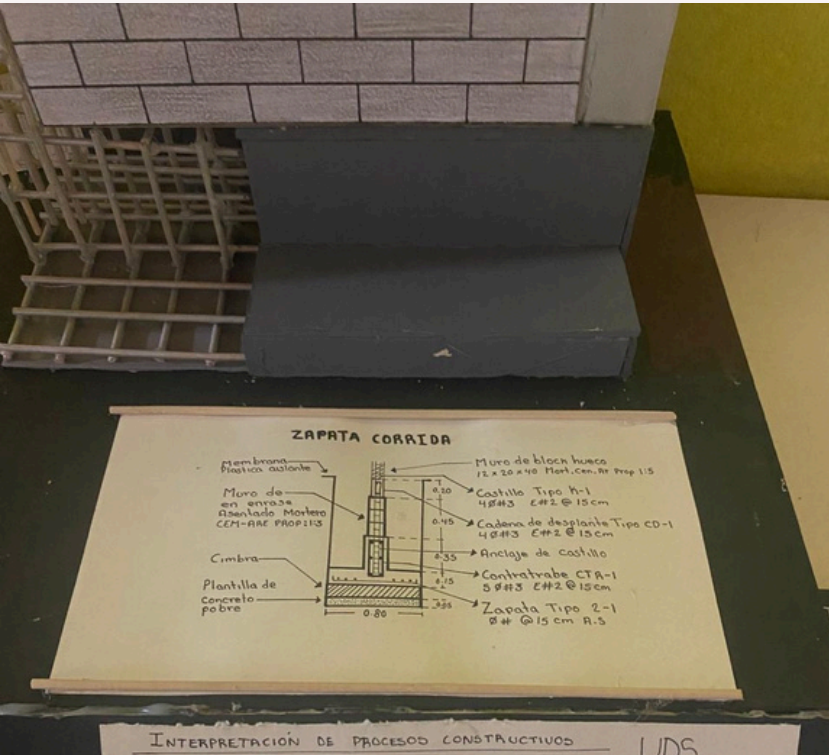 ZAPATA CORRIDA
Membrana
Plastica aislante
Muro de
en enrase
Asentado Mortero
CEM-ARE PROP:1:3
Cimbra
Plantilla de
concreto
pobre
Muro de block hueco
12 x 20 x 40 Mort. Cen. Ar Prop 1:5
Castillo Tipo K-1
4Ø#3 E#2 @ 15cm
Cadena de desplante Tipo CD-1
4Ø#3 E#2 @ 15cm
Anclaje de castillo
Contratrabe CTR-1
5Ø#3 E#2 @ 15cm
Zapata Tipo Z-1
Ø# @ 15 cm A.S
0.20
0.45
0.35
0.15
0.80
INTERPRETACIÓN DE PROCESOS CONSTRUCTIVOS
UDS